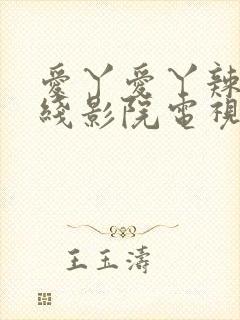 愛丫愛丫辣
綫影院電視
王玉濤